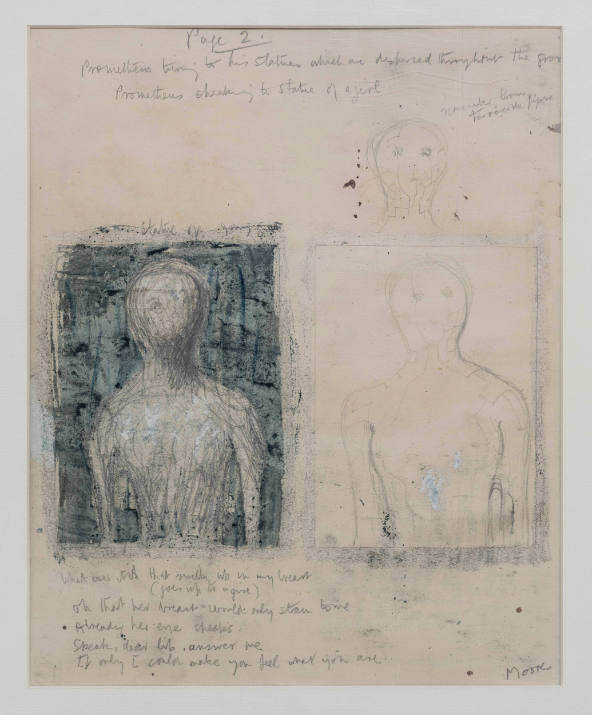 Page 2.
Prometheus to his statues which are dispersed throughout the
Prometheus speaking to statue of a girl
terracotta figure
statue of
What that in my breast
(goes up to a girl)
oh that her breast would only strain to me
Already her eye speaks.
Speak, dear lip, answer me
If only I could make you feel what you are..
Moore